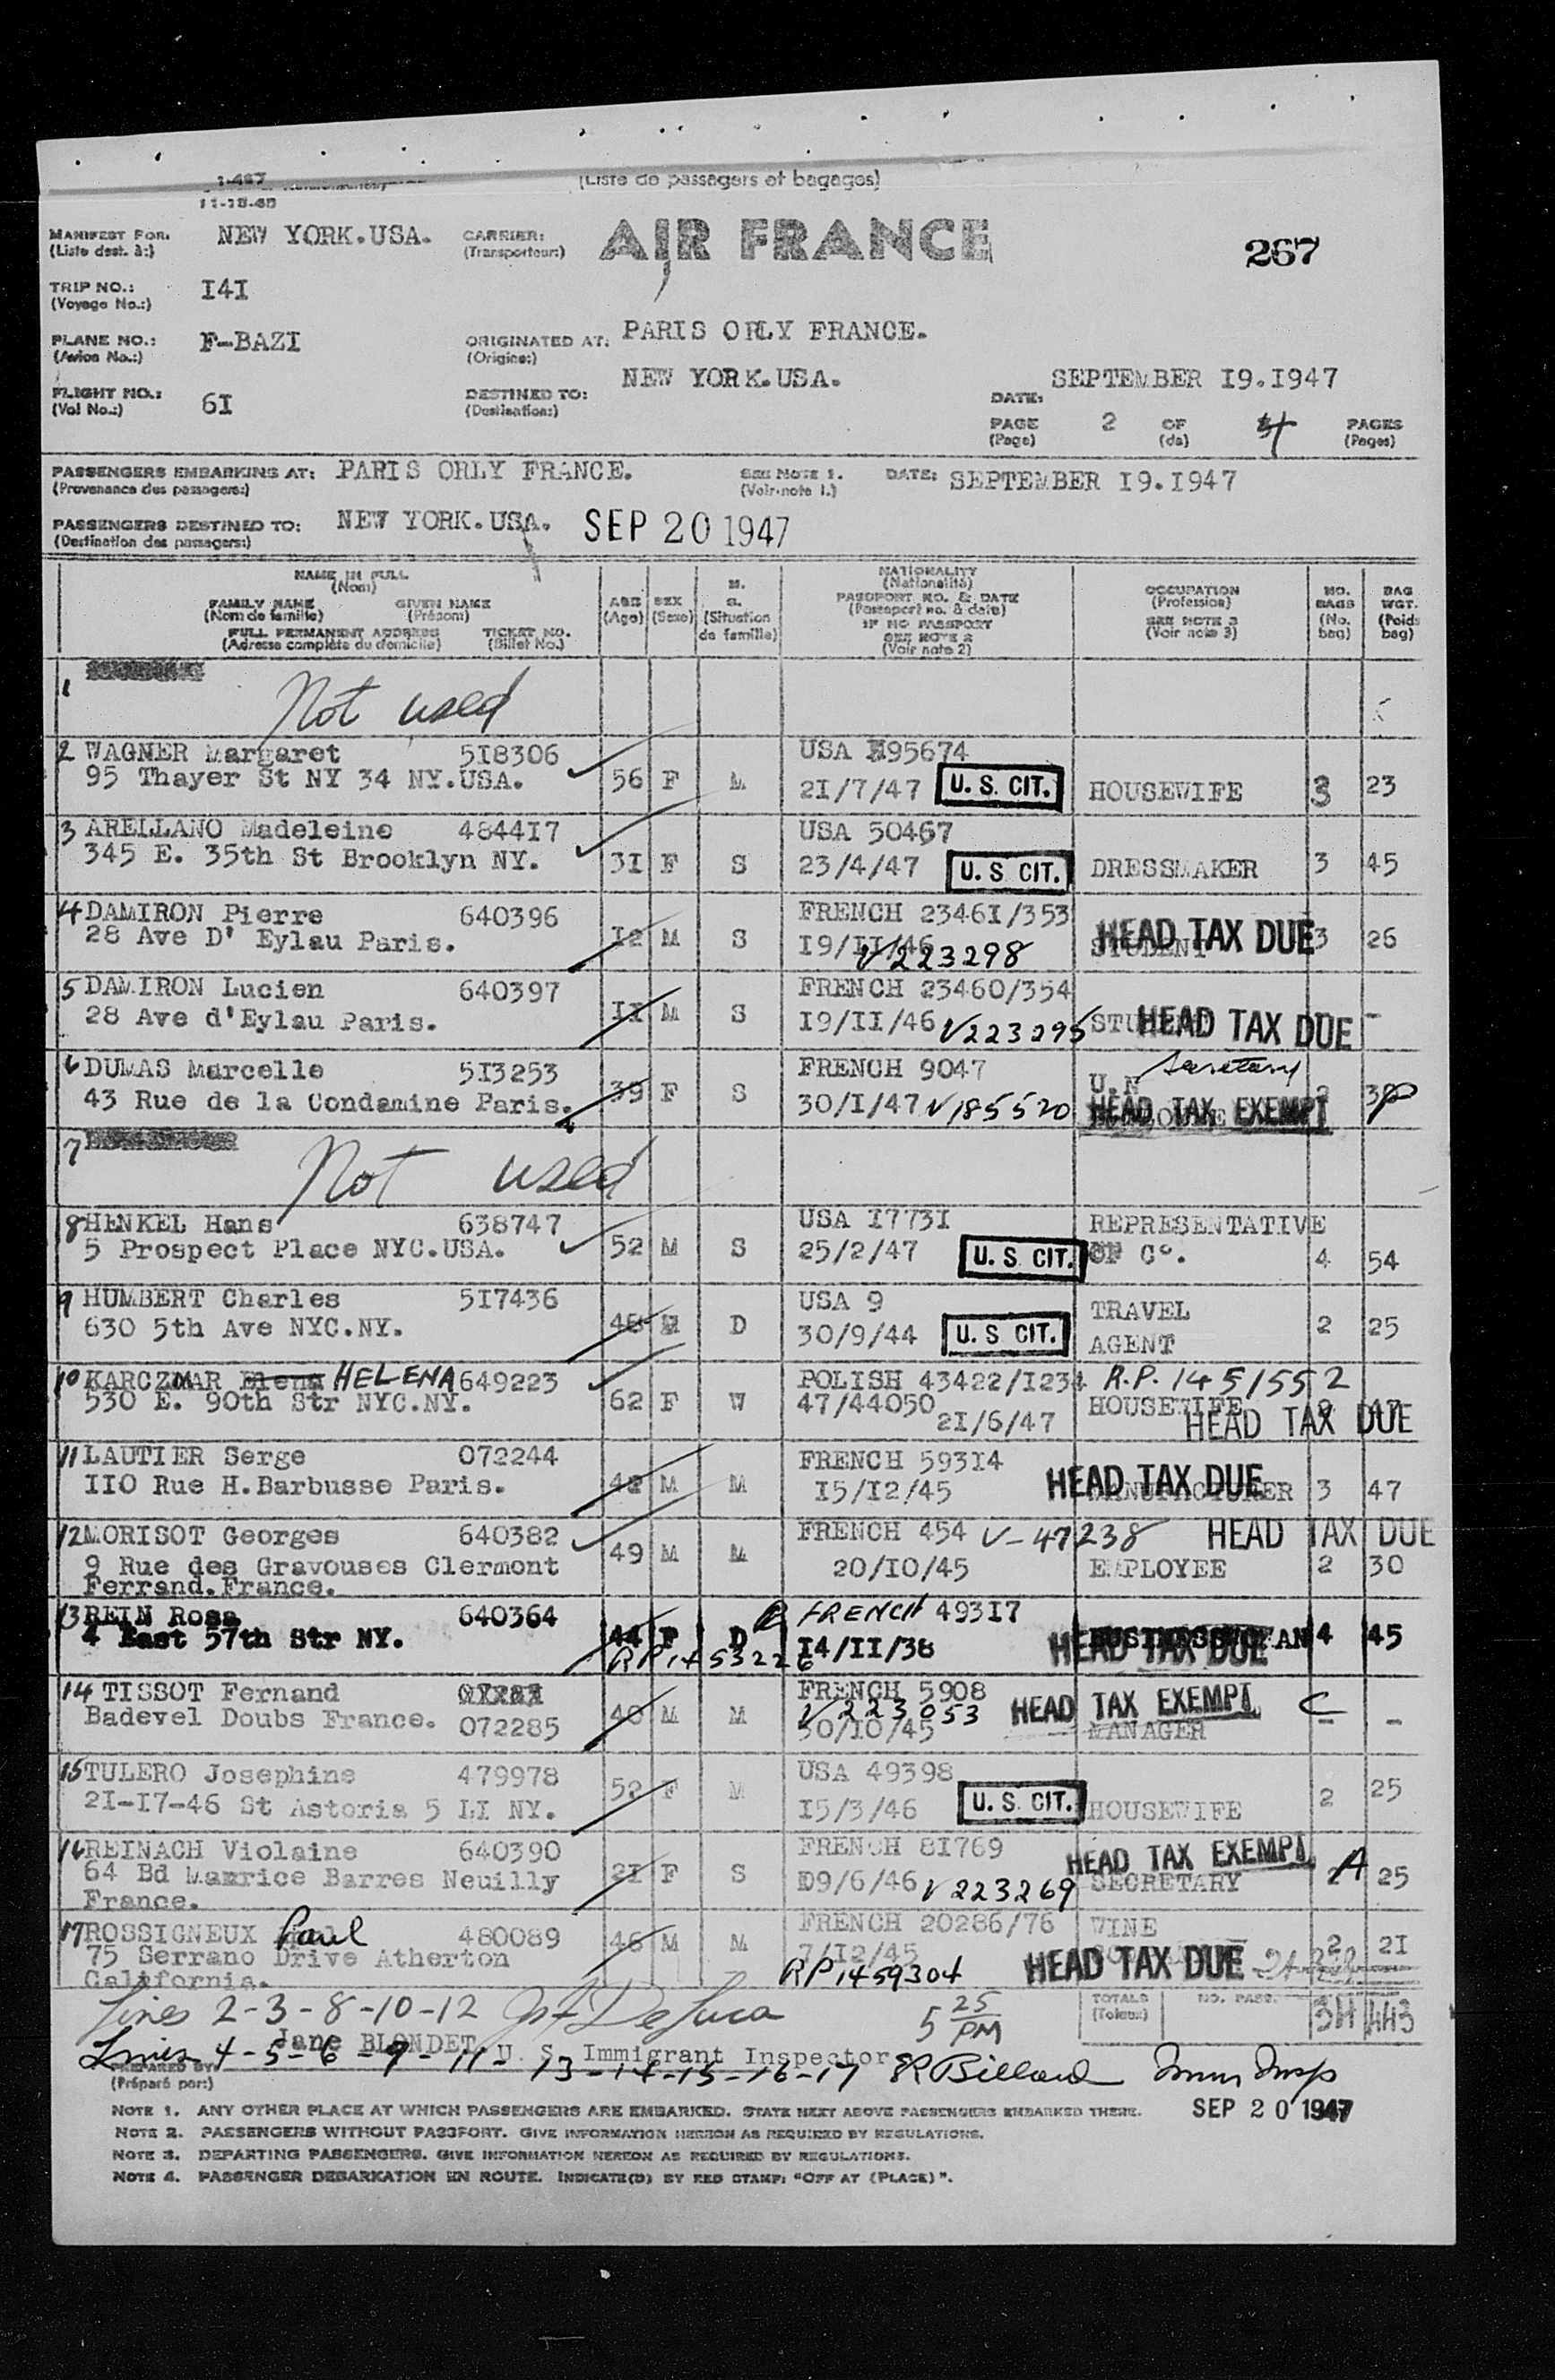 I-487
11-18-46
(Liste de passagers et bagages)
MANIFEST FOR: NEW YORK.USA. CARRIER: AIR FRANCE 267
(Liste dest. à:) (Transporteur:)
TRIP NO.: I4I
(Voyage No.:)
PLANE NO.: F-BAZI ORIGINATED AT: PARIS ORLY FRANCE.
(Avion No.:) (Origine:)
FLIGHT NO.: 6I DESTINED TO: NEW YORK.USA. DATE: SEPTEMBER I9.I947
(Vol No.:) (Destination:)
PAGE 2 OF 4 PAGES
(Page) (de) (Pages)
PASSENGERS EMBARKING AT: PARIS ORLY FRANCE. SEE NOTE 1. DATE: SEPTEMBER I9.I947
(Provenance des passagers:) (Voir note 1.)
PASSENGERS DESTINED TO: NEW YORK.USA. SEP 20 1947
(Destination des passagers:)
NAME IN FULL
(Nom)
FAMILY NAME GIVEN NAME
(Nom de famille) (Prénom)
FULL PERMANENT ADDRESS TICKET NO.
(Adresse complète du domicile) (Billet No.)
AGE
(Age)
SEX
(Sexe)
M.
S.
(Situation
de famille)
NATIONALITY
(Nationalité)
PASSPORT NO. & DATE
(Passeport no. & date)
IF NO PASSPORT
SEE NOTE 2
(Voir note 2)
OCCUPATION
(Profession)
SEE NOTE 3
(Voir note 3)
NO.
BAGS
(No.
bag)
BAG
WGT.
(Poids
bag)
1 Not used
2 WAGNER Margaret 5I8306 USA 95674
95 Thayer St NY 34 NY.USA. 56 F M 2I/7/47 U. S. CIT. HOUSEWIFE 3 23
3 ARELLANO Madeleine 4844I7 USA 50467
345 E. 35th St Brooklyn NY. 3I F S 23/4/47 U. S. CIT. DRESSMAKER 3 45
4 DAMIRON Pierre 640396 FRENCH 2346I/353
28 Ave D' Eylau Paris. I2 M S I9/II/46 V223298 STUDENT HEAD TAX DUE 3 26
5 DAMIRON Lucien 640397 FRENCH 23460/354
28 Ave d'Eylau Paris. II M S I9/II/46 V223295 HEAD TAX DUE -
6 DUMAS Marcelle 5I3253 FRENCH 9047 Secretary
43 Rue de la Condamine Paris. 39 F S 30/I/47 V185520 U.N HEAD TAX EXEMPT
7 Not used
8 HENKEL Hans 638747 USA I773I REPRESENTATIVE
5 Prospect Place NYC.USA. 52 M S 25/2/47 U. S. CIT. OF C°. 4 54
9 HUMBERT Charles 5I7436 USA 9 TRAVEL
630 5th Ave NYC.NY. D 30/9/44 U. S. CIT. AGENT 2 25
10 KARCZMAR Elena HELENA 649223 POLISH 43422/I234 R.P. 1451552
530 E. 90th Str NYC.NY. 62 F W 47/44050 2I/6/47 HOUSEWIFE HEAD TAX DUE
11 LAUTIER Serge 072244 FRENCH 593I4
IIO Rue H.Barbusse Paris. 42 M M I5/I2/45 MANUFACTURER HEAD TAX DUE 3 47
12 MORISOT Georges 640382 FRENCH 454 V-47238 HEAD TAX DUE
9 Rue des Gravouses Clermont 49 M M 20/IO/45 EMPLOYEE 2 30
Ferrand.France.
13 REIN Rosa 640364 FRENCH 493I7
4 East 57th Str NY. 44 F D I4/II/38 BUSINESSWOMAN HEAD TAX DUE 4 45
RP1453226
14 TISSOT Fernand FRENCH 5908 HEAD TAX EXEMPT C
Badevel Doubs France. 072285 M M V223053 30/IO/45 MANAGER - -
15 TULERO Josephine 479978 USA 49398
2I-I7-46 St Astoria 5 LI NY. 52 F M I5/3/46 U. S. CIT. HOUSEWIFE 2 25
16 REINACH Violaine 640390 FRENCH 8I769 HEAD TAX EXEMPT A
64 Bd Maurice Barres Neuilly 2I F S 9/6/46 V223269 SECRETARY 2 25
France.
17 ROSSIGNEUX Paul 480089 FRENCH 20286/76 WINE
75 Serrano Drive Atherton 46 M M 7/I2/45 HEAD TAX DUE 2 2I
California. RP1459304
Lines 2-3-8-10-12 DeLuca 5 25 PM TOTALS NO. PASS. 34 443
(Totaux)
Jane BLONDET U. S. Immigrant Inspector
Lines 4-5-6-9-11-13-14-15-16-17 R Billard Imm Insp
PREPARED BY
(Préparé par:)
NOTE 1. ANY OTHER PLACE AT WHICH PASSENGERS ARE EMBARKED. STATE NEXT ABOVE PASSENGERS EMBARKED THERE. SEP 20 1947
NOTE 2. PASSENGERS WITHOUT PASSPORT. GIVE INFORMATION HEREON AS REQUIRED BY REGULATIONS.
NOTE 3. DEPARTING PASSENGERS. GIVE INFORMATION HEREON AS REQUIRED BY REGULATIONS.
NOTE 4. PASSENGER DEBARKATION EN ROUTE. INDICATE(D) BY RED STAMP: "OFF AT (PLACE)".